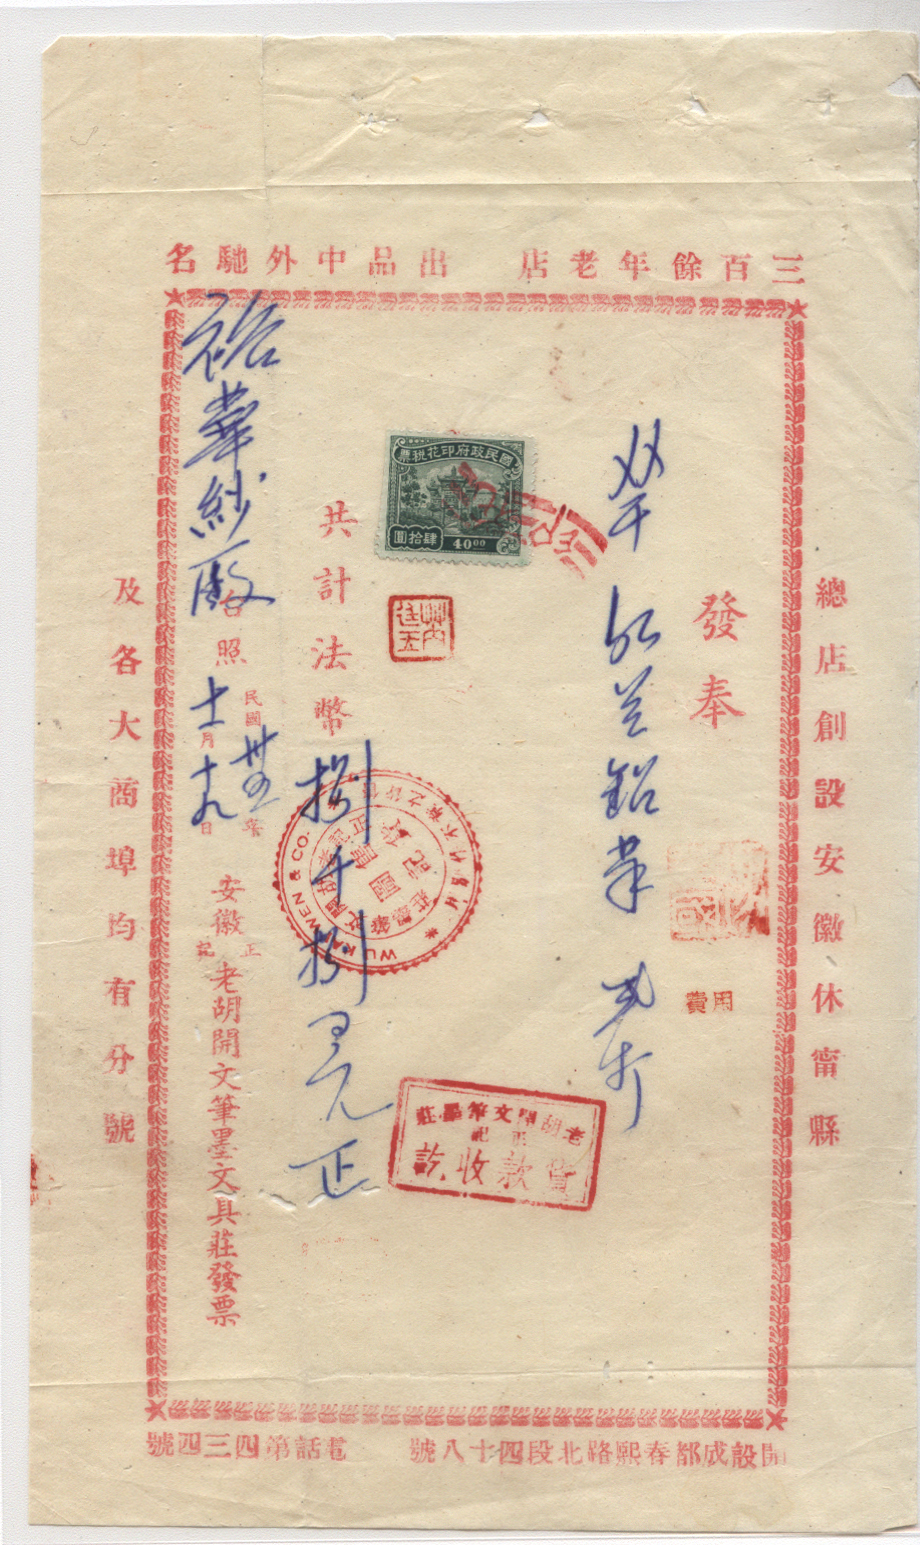 三百餘年老店 出品中外馳名
總店創設安徽休甯縣
發奉
費用
紅藍鉛筆
國民政府印花税票
肆拾圓
40⁰⁰
共計法幣捌千捌百元正
WU KAI WEN & CO.
老胡開文筆墨莊
正記
貨款收訖
裕華紗廠台照
民國卅五年
十一月十九日
安徽正記老胡開文筆墨文具莊發票
及各大商埠均有分號
開設成都春熙路北段四十八號 電話第四三四號